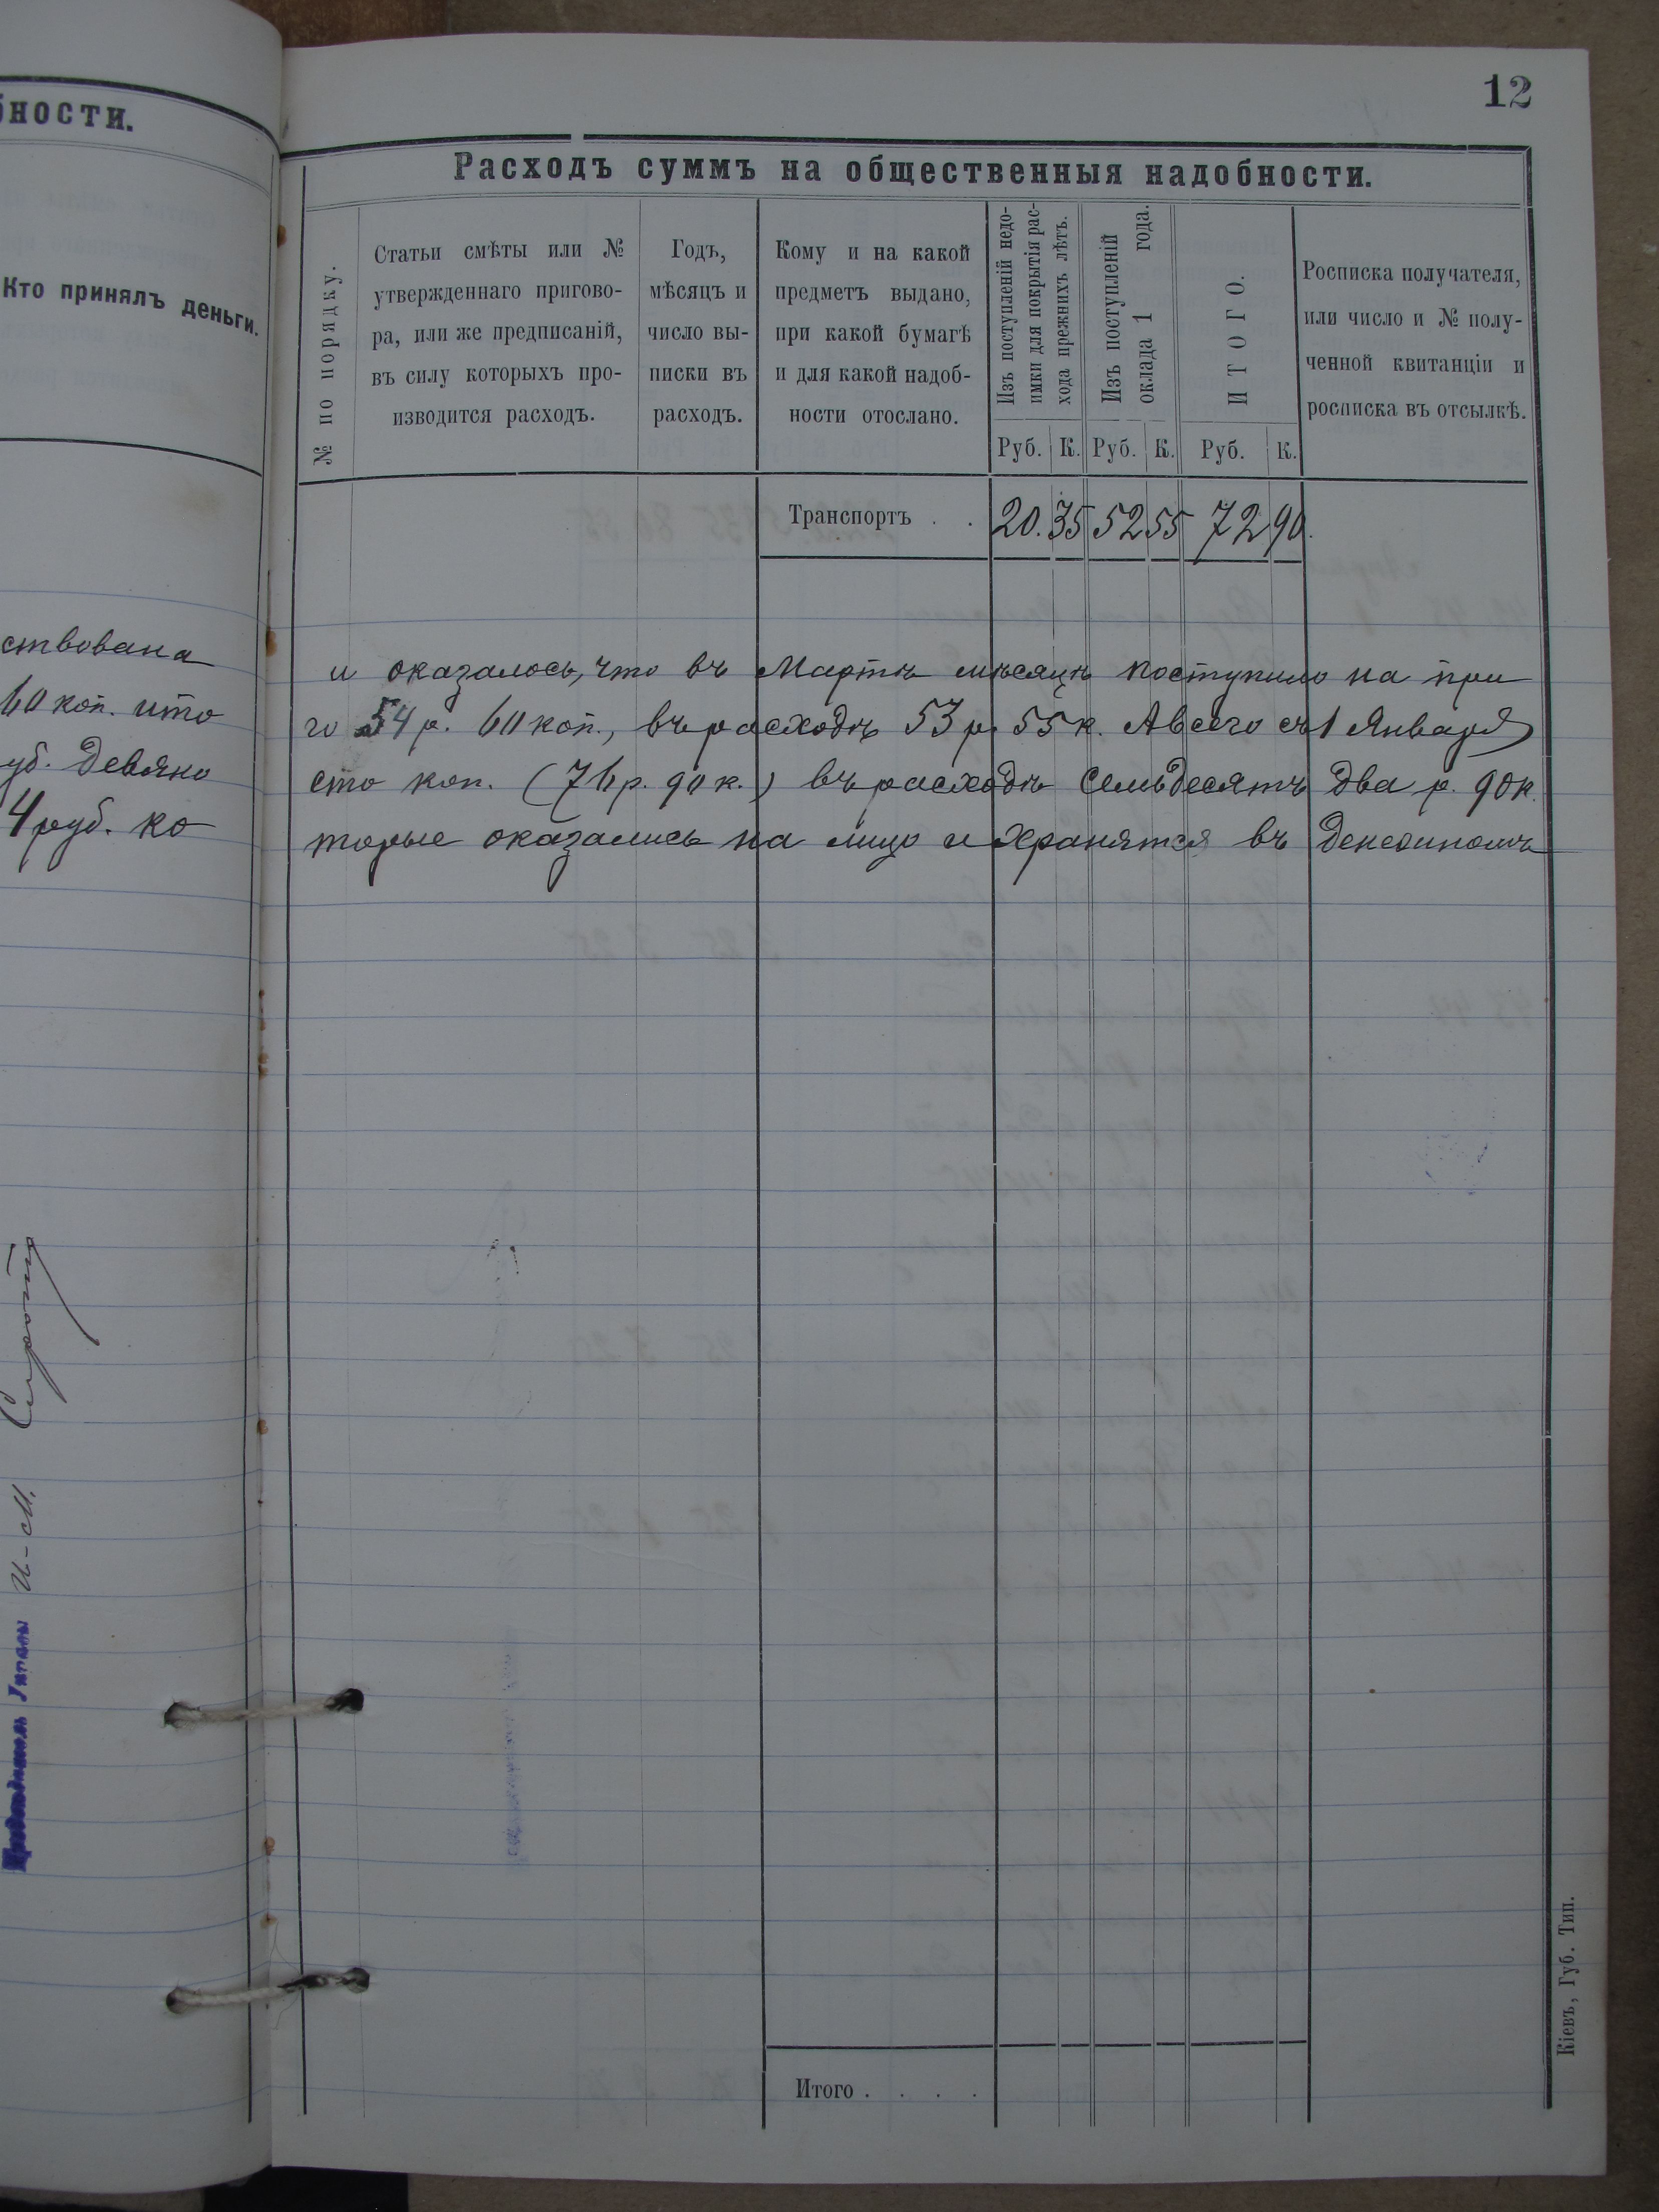 бности.
Кто принялъ деньги.
ствована
60 коп. ито
уб. девяно
4 руб. ко
И-М.
12
Расходъ суммъ на общественныя надобности.
№ по порядку.
Статьи смѣты или №
утвержденнаго пригово-
ра, или же предписаній,
въ силу которыхъ про-
изводится расходъ.
Годъ,
мѣсяцъ и
число вы-
писки въ
расходъ.
Кому и на какой
предметъ выдано,
при какой бумагѣ
и для какой надоб-
ности отослано.
Изъ поступленій недо-
имки для покрытія рас-
хода прежнихъ лѣтъ.
Изъ поступленій
оклада 1 года.
ИТОГО.
Росписка получателя,
или число и № полу-
ченной квитанціи и
росписка въ отсылкѣ.
Руб. К. Руб. К. Руб. К.
Транспортъ . . 20. 35 52 55 72 90.
и оказалось, что въ Мартѣ мѣсяцѣ поступило на при
го 54 р. 60 коп., въ расходѣ 53 р. 55 к. А всего съ 1 Января
сто коп. (76 р. 90 к.) въ расходѣ семьдесятъ два р. 90 к.
торые оказались на лицо и хранятся въ денежномъ
Итого . . . .
Кіевъ, Губ. Тип.